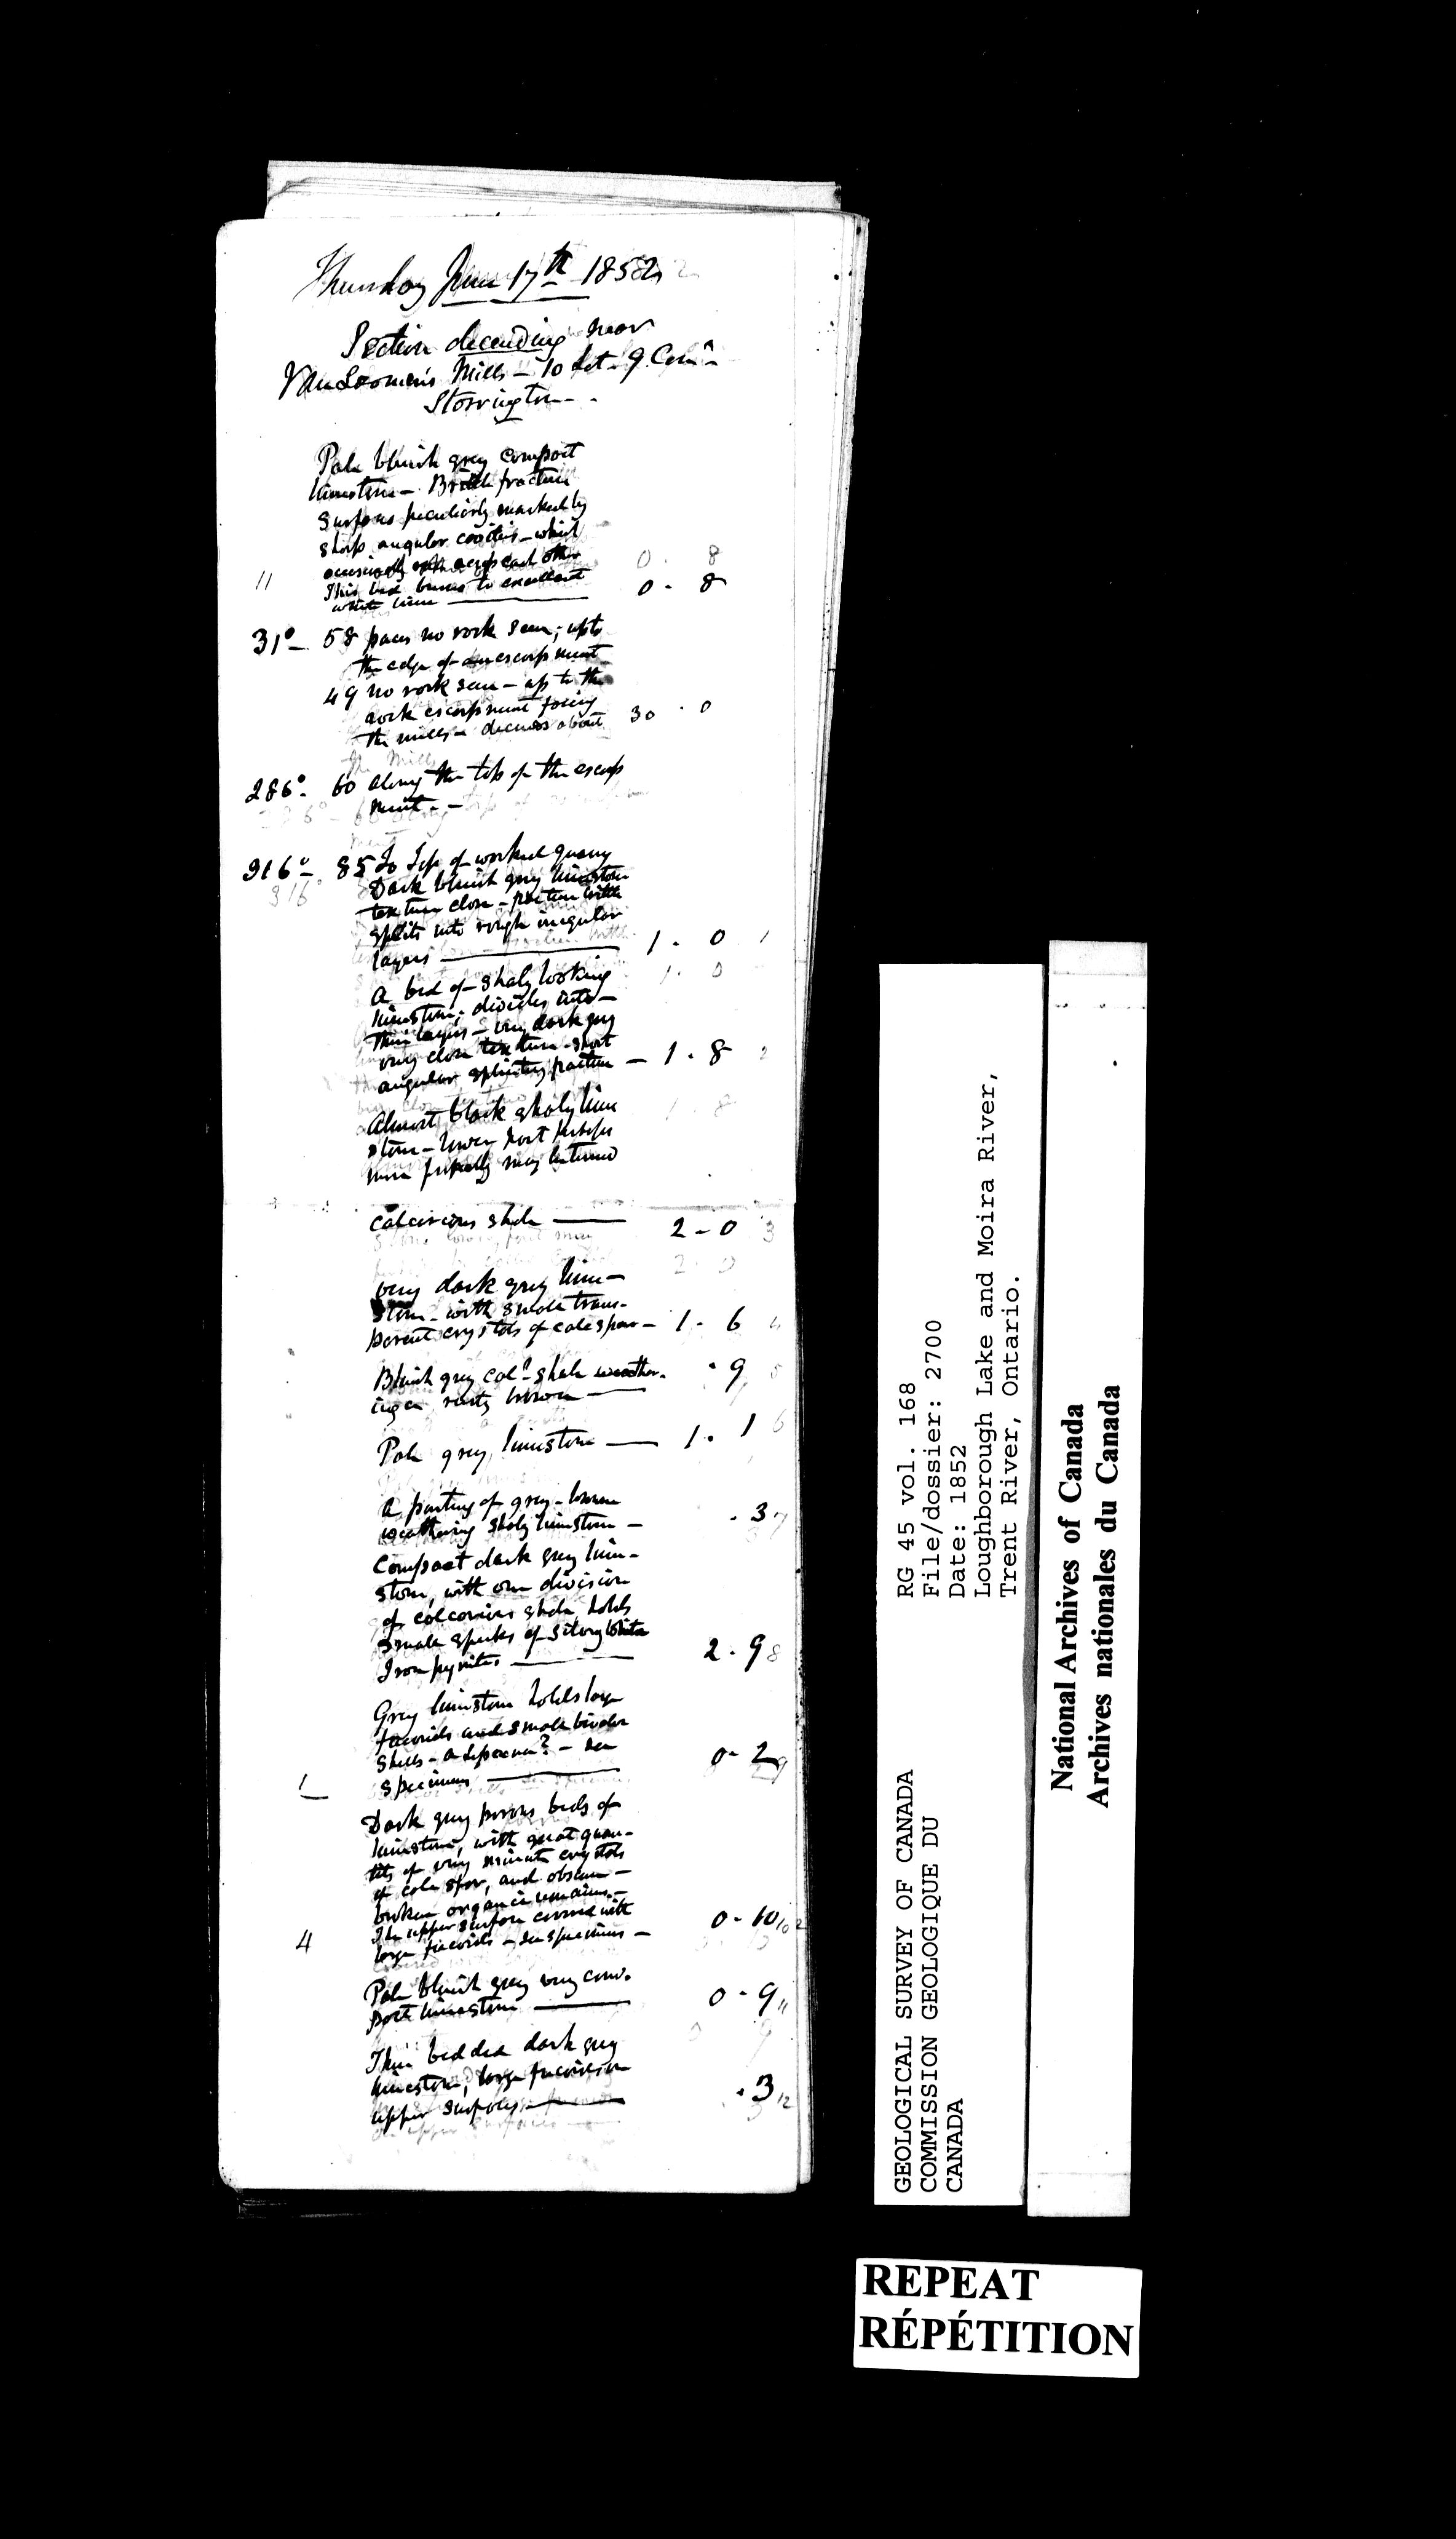 Thursday June 17th 1852
Section decending near
VanLoomen's Mills - 10 Lot - 9 Con.n
Storrington -
Pale bluish grey compact
limestone - Brittle fracture
Surfaces peculiarly marked by
sharp angular cavities - which
occasionally each other
11 This bed burns to excellent
white lime 0 - 8
31° - 58 paces no rock seen; up to
the edge of an escarpment
49 no rock seen - up to the
rock escarpment facing
the mills - decends about 30 . 0
286° - 60 along the top of the escarp
ment. -
316° - 85 to Top of worked quarry
Dark bluish grey limestone
texture close - fracture brittle
splits into rough irregular
layers 1 . 0 1
A bed of shaly looking
limestone; divides into -
thin layers - very dark grey
very close texture - short
angular splintery fracture - 1 . 8 2
Almost black shaly lime
stone - lower part perhaps
more properly may be termed
calcarious shale 2 - 0 3
very dark grey lime -
stone - with small trans-
parent crystals of calc spar - 1 . 6 4
Bluish grey cal.s shale weather.
ing a rusty brown . 9 5
Pale grey limestone 1 . 1 6
A parting of grey - brown
weathering shaly limestone - . 3 7
Compact dark grey lime -
stone, with one division
of calcarious shale, holds
small specks of silvery white
Iron pyrites 2 . 9 8
Grey limestone holds large
fucoids and small bivalve
Shells - a ? - see
1 specimens 0 - 2 9
Dark grey porous beds of
limestone, with great quan-
tity of very minute crystals
of calc spar, and obscure -
broken organic remains. -
The upper surface covered with
4 large fucoids - see specimens - 0 - 10 10
Pale bluish grey very com-
pact limestone 0 - 9 11
Thin bedded dark grey
limestone, large fucoids on
upper surfaces . 3 12
GEOLOGICAL SURVEY OF CANADA
COMMISSION GEOLOGIQUE DU
CANADA
RG 45 vol. 168
File/dossier: 2700
Date: 1852
Loughborough Lake and Moira River,
Trent River, Ontario.
National Archives of Canada
Archives nationales du Canada
REPEAT
RÉPÉTITION